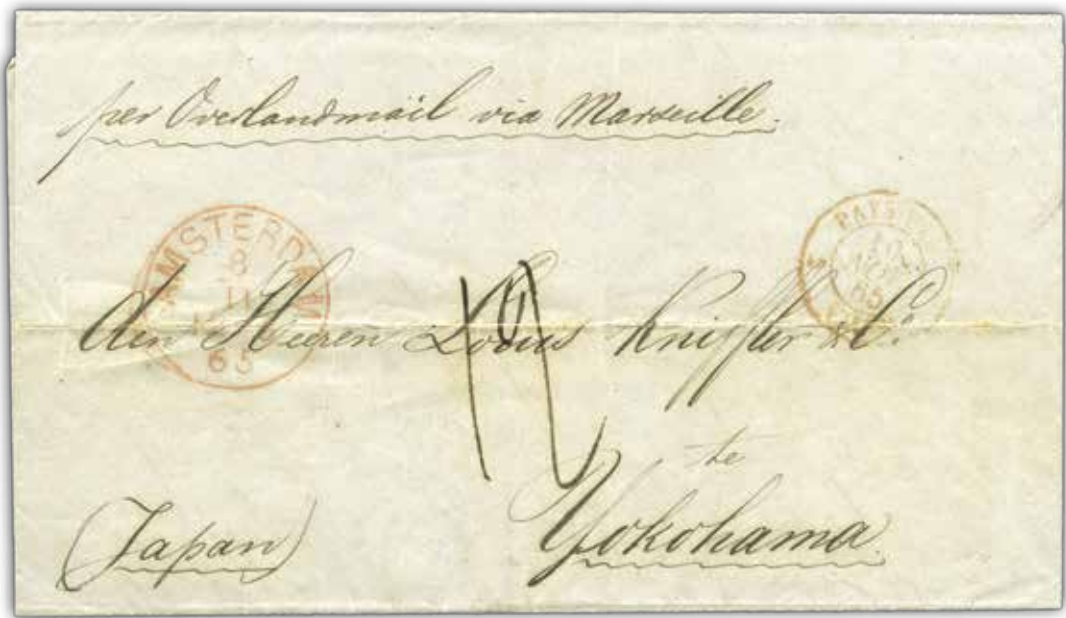 per Overlandmail via Marseille.
AMSTERDAM
8
11
65
PAYS
10
65
den Heeren Louis Kniffler & Co.
12
te
Yokohama.
(Japan)